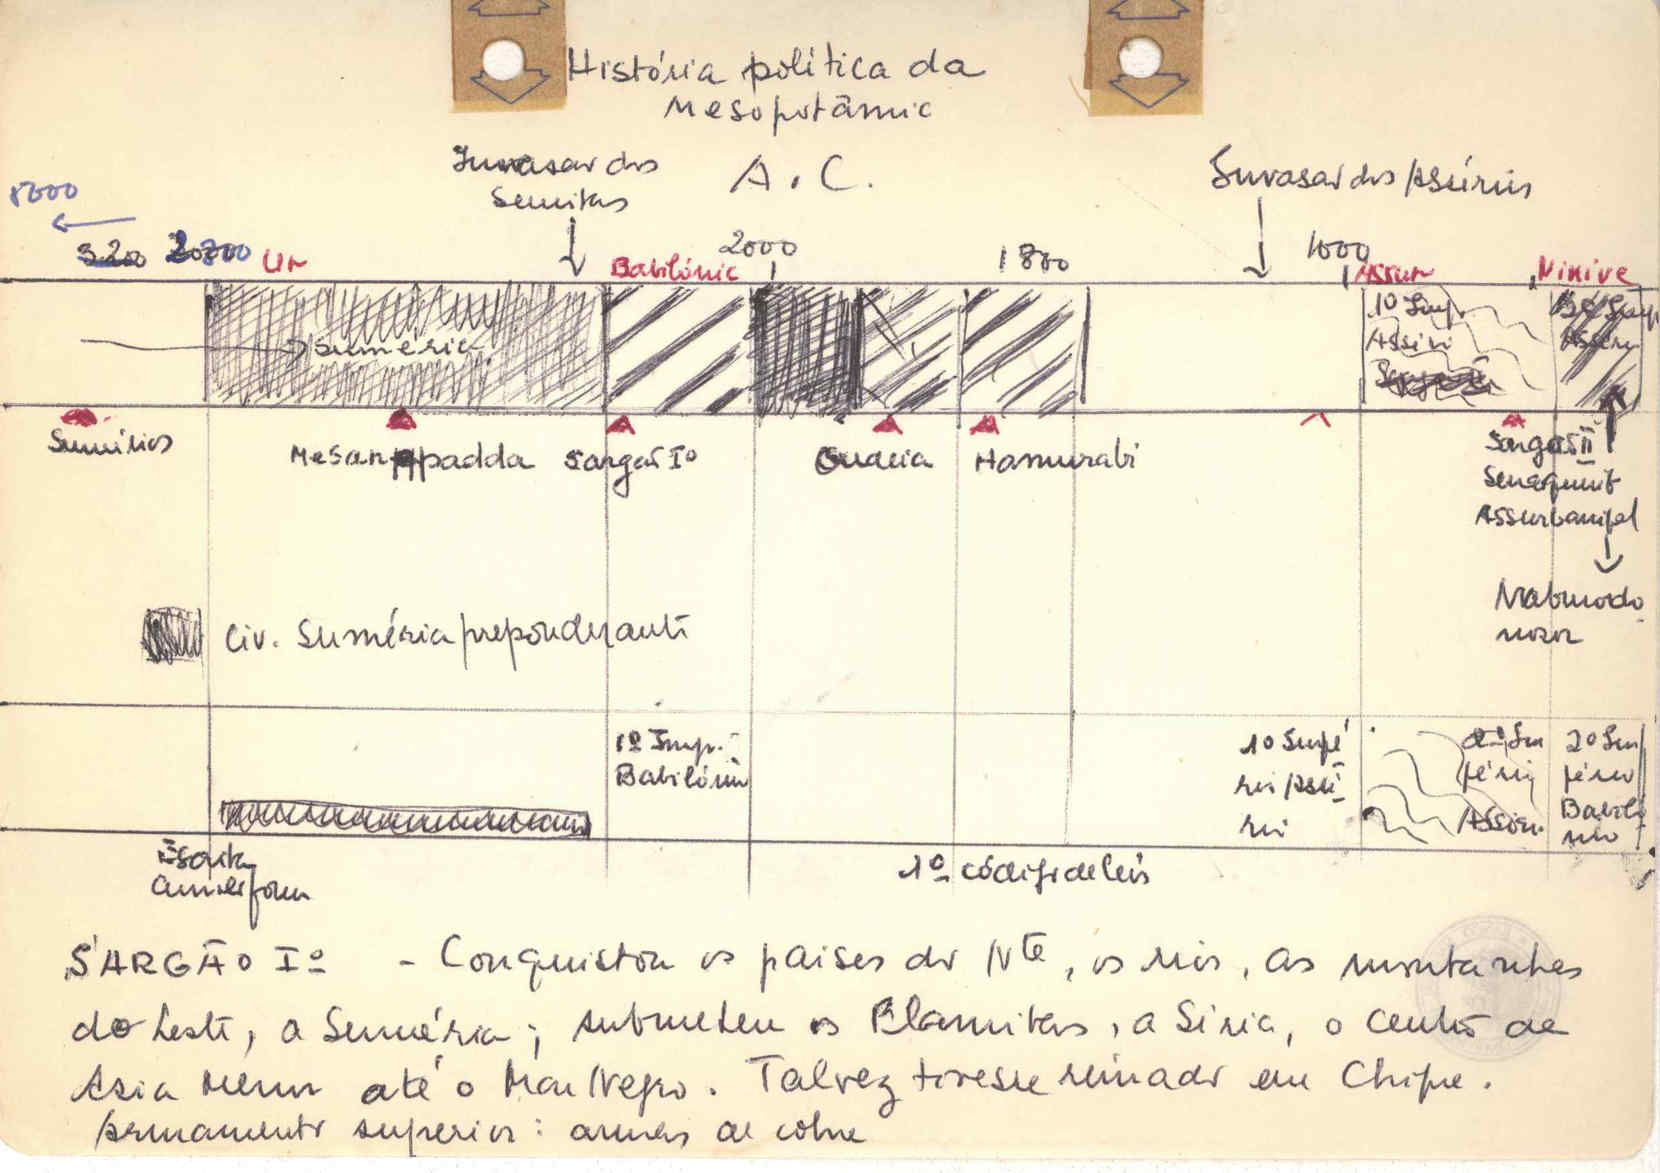 História política da
Mesopotâmic
Invasão dos
Semitas
A.C.
Invasão dos Assírios
5000
3200
Ur
Babilónic
2000
1800
1000
Assur
Ninive
suméria
1º Imp.
Assíri
Imp
Assíri
Sumérios
Mesannapadda
Sargão Iº
Gudeia
Hamurabi
Sargão II
Senaquerib
Assurbanipal
Nabucodo
nosor
Civ. Suméria preponderante
1º Imp.
Babilónio
1º Impé
rio Assí-
rio
2º Im
pério
Assírio
2º Im
pério
Babiló
nio
Escrita
cuneiform
1º código de leis
SARGÃO Iº - Conquistou os países do Nte, os rios, as montanhas
do Leste, a Suméria; submeteu os Elamitas, a Síria, o centro de
Asia Menor até o Mar Negro. Talvez tivesse reinado em Chipre.
Armamento superior: armas de cobre